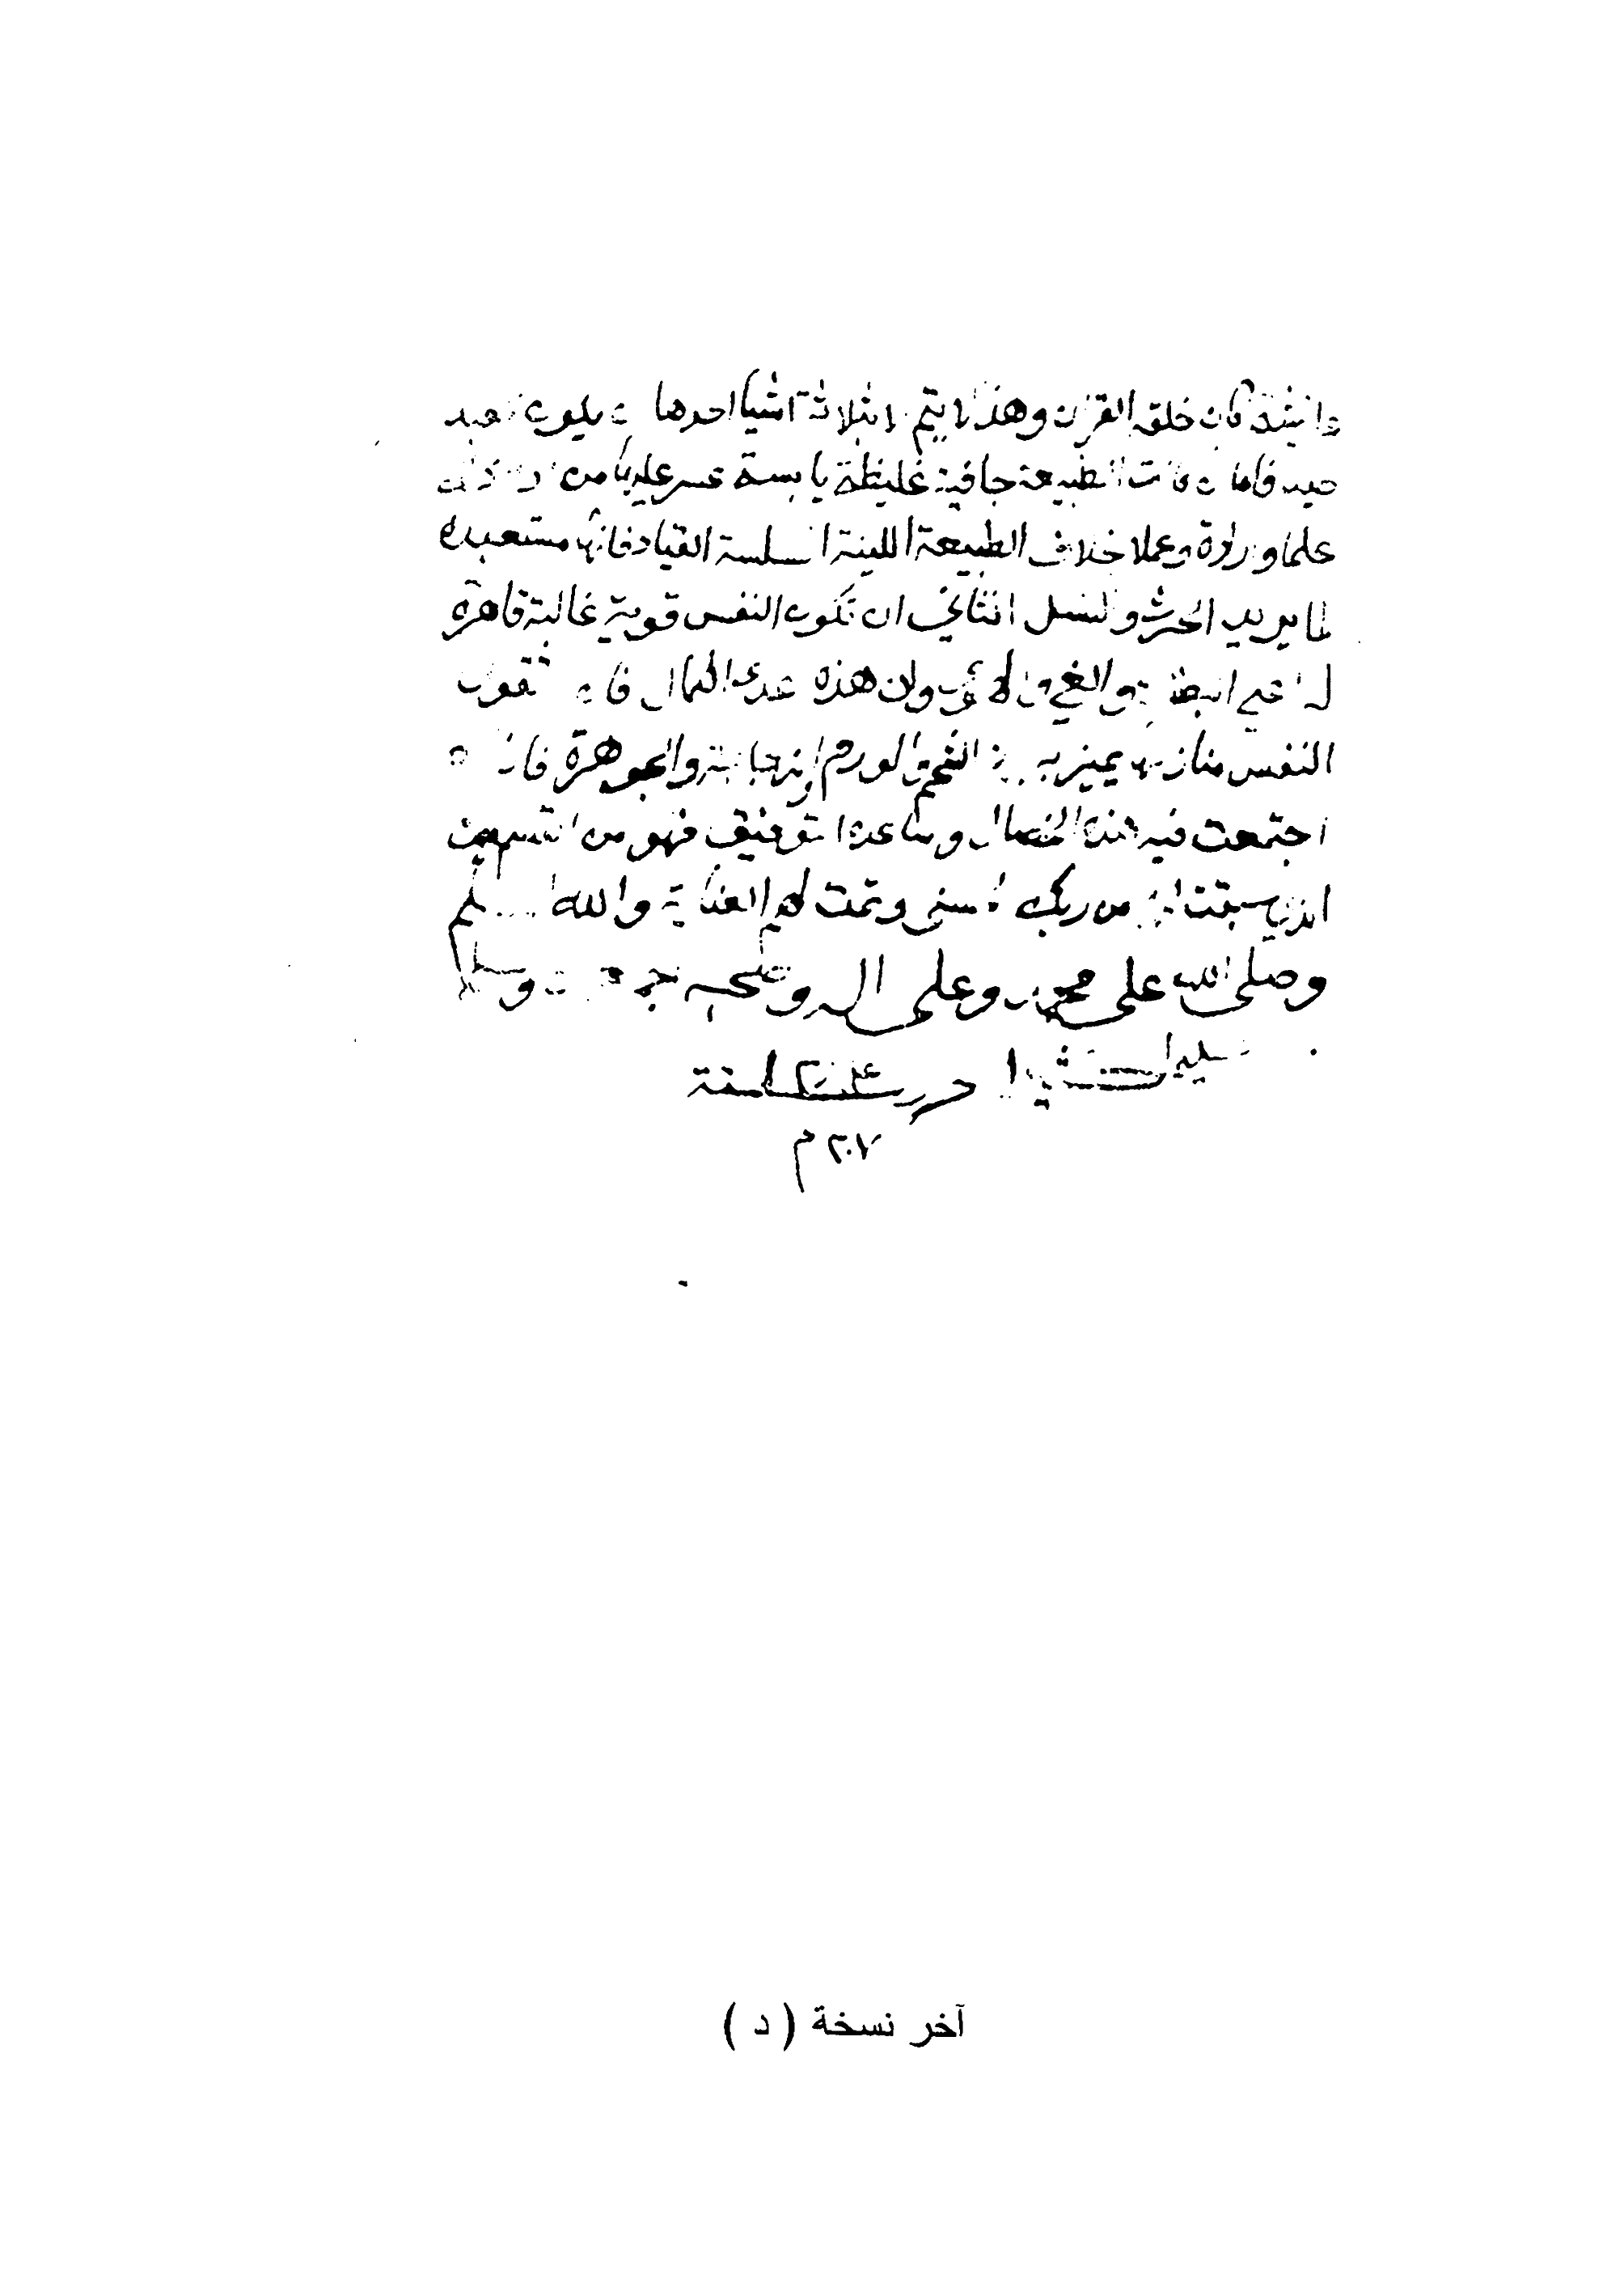 عائشة كان خلقه القرآن وهذا لا يتم الا بثلاثة اشيا احدها ان يكون العبد
جيد فاما ان كانت الطبيعة جافية غليظة يابسة عسر عليها من
علما وارادة وعملا خلاف الطبيعة اللينة السلسة القياد فانها مستعدة
لما يريد الحرث والنسل الثاني ان تكون النفس قوية غالبة قاهرة
لداعي البطالة والغي والهوى ولان هذه عدى الكمال فان تقوى
النفس منازلها يميز به بين الشحم والورم والزجاجة والجوهرة فان
اجتمعت فيه هذه الخصال وساعده التوفيق فهو من القسم
الذين سبقت لهم من ربك الحسنى وتمت لهم العناية والله اعلم
وصلى الله على محمد وعلى اله وصحبه وسلم
تسليما كثيرا حرر سنة
٢٠٧ م
آخر نسخة ( د )